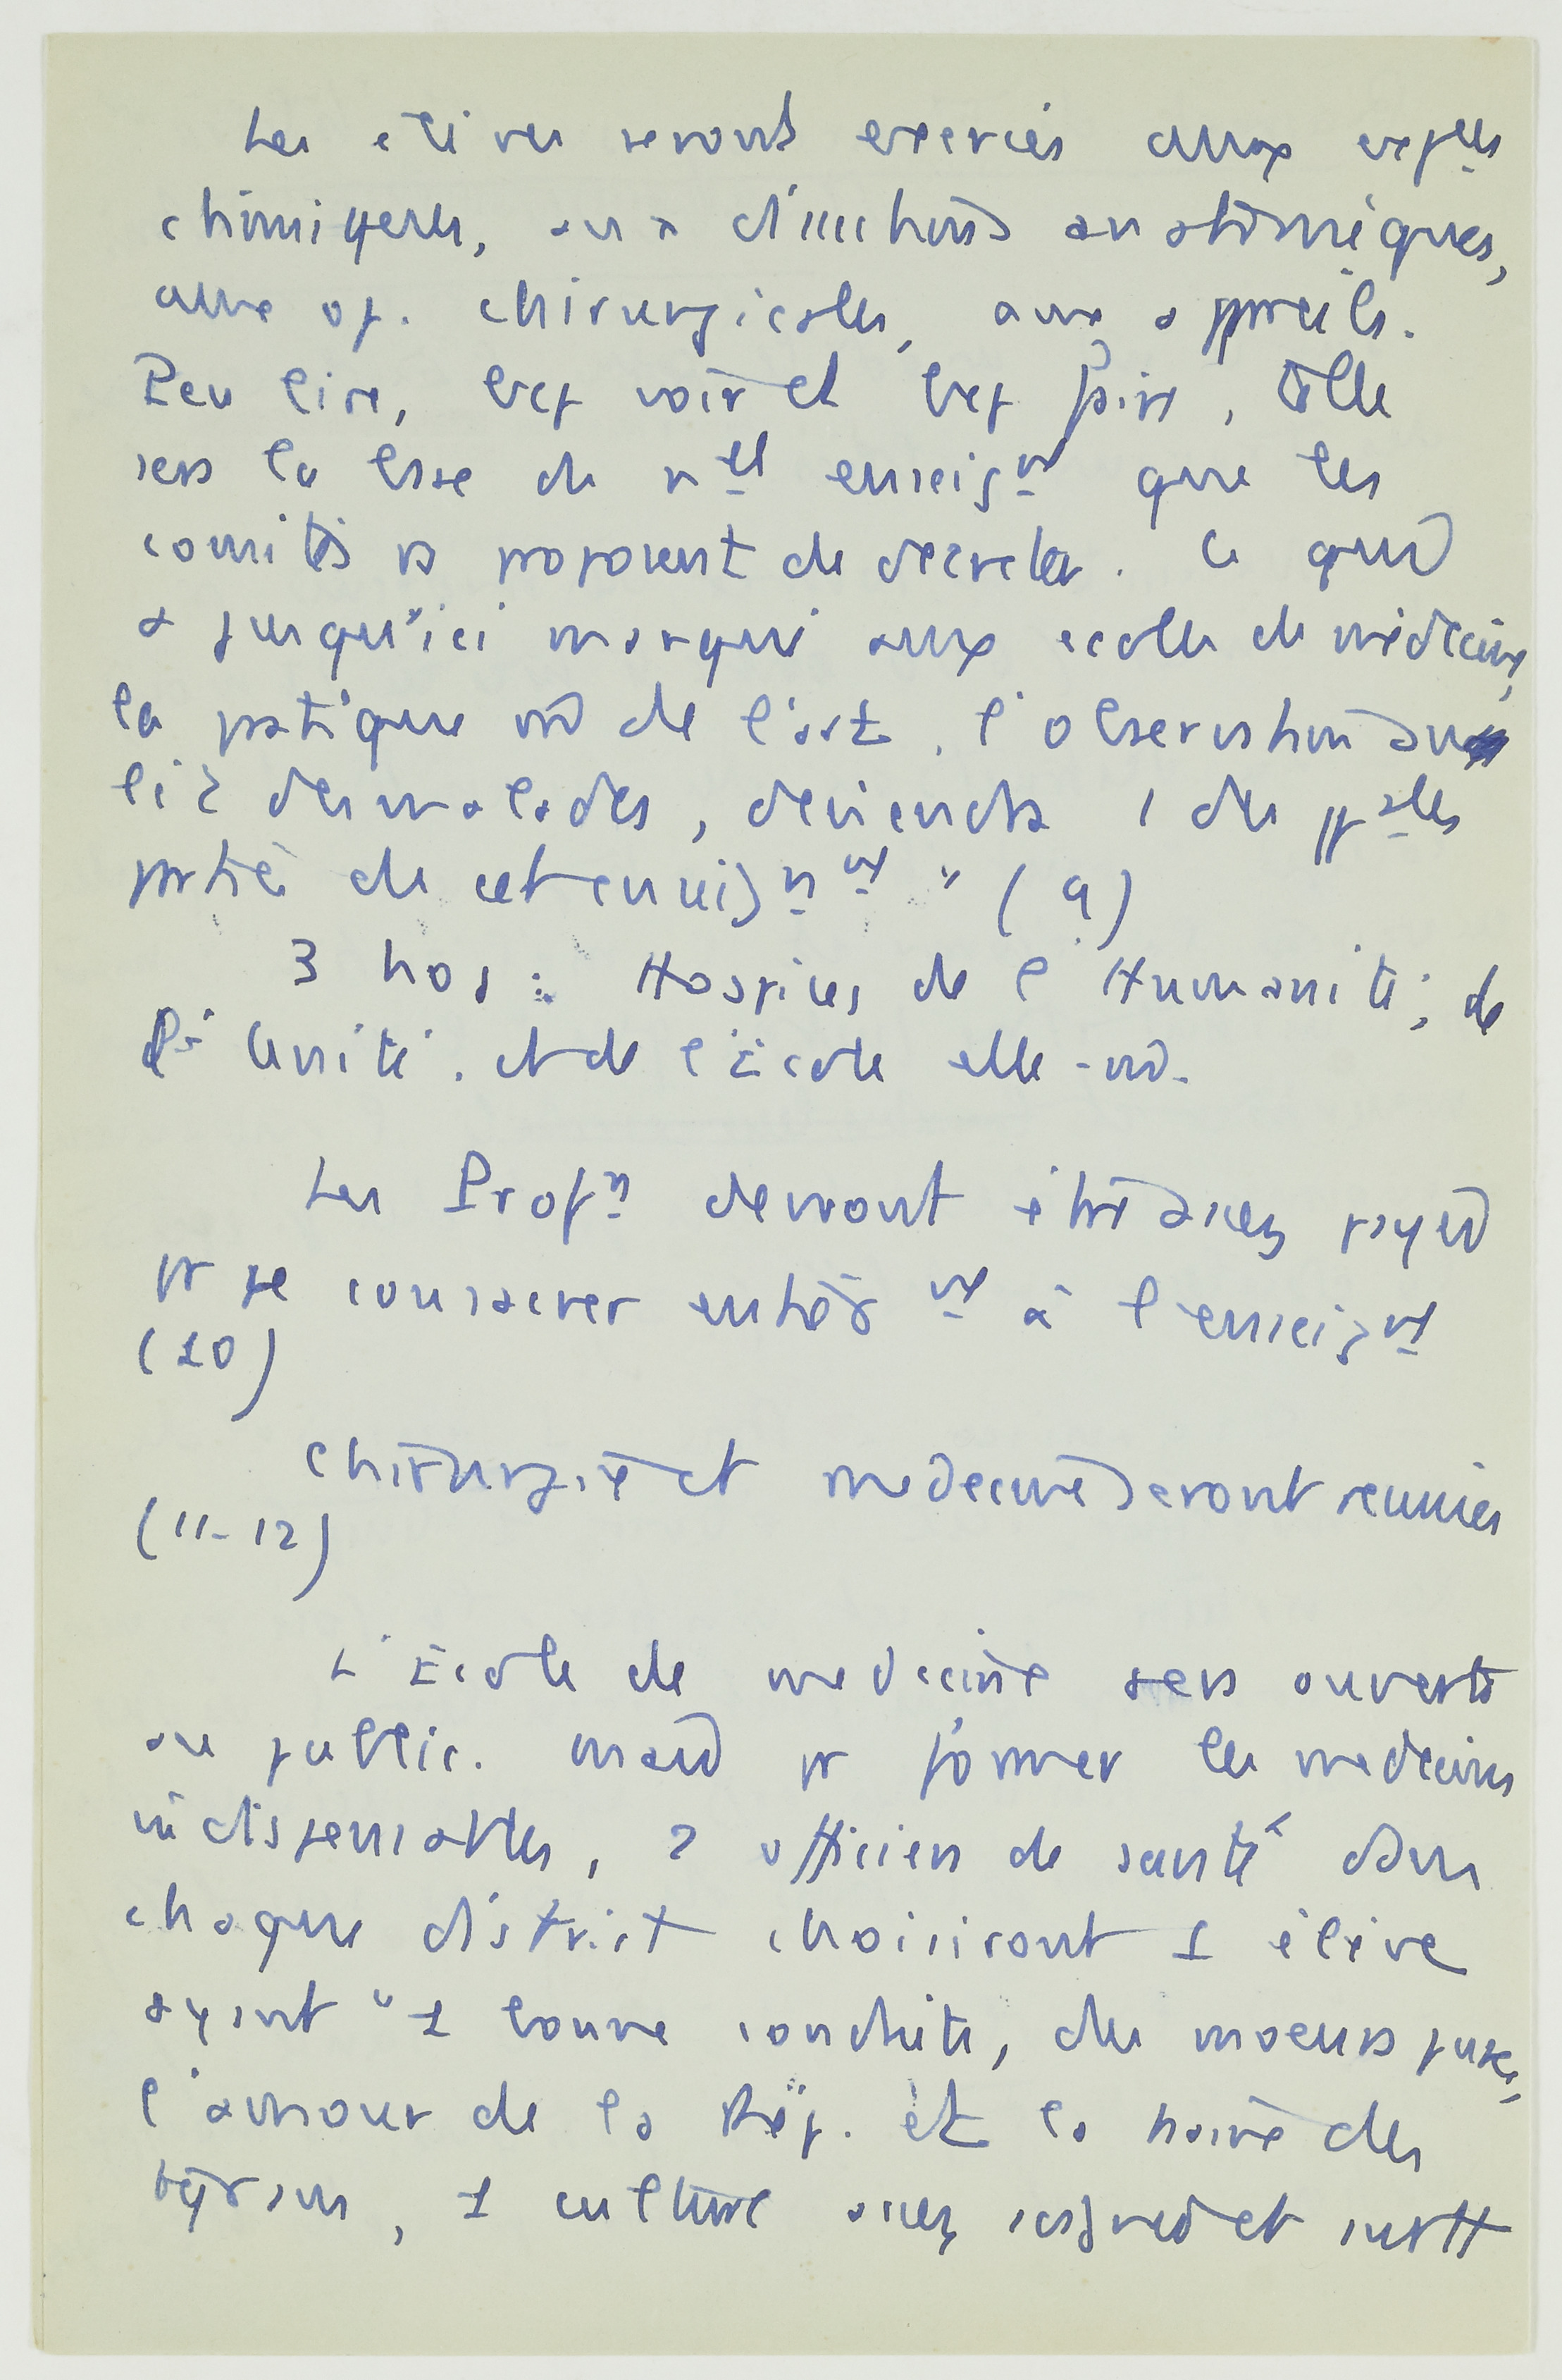 Les élèves seront exercés aux exp^ces
chimiques, aux dissections anatomiques,
aux op. chirurgicales, aux appareils.
Peu lire, bcp voir et bcp faire, telle
sera la base du n^el enseig^nt que les
comités vs proposent de décréter. Ce qui
a jusqu'ici manqué aux écoles de médecine,
la pratique m̂ de l'art, l'observation au
lit des malades, deviendra 1 des pp^ales
parties de cet enseign^nt " (9)
3 hos : Hospices de l'Humanité ; de
l'Unité, et de l'École elle-m̂.
Les Prof^rs devront être assez payés
pr se consacrer entièr^nt à l'enseig^nt
(10)
Chirurgie et médecine seront réunies
(11-12)
L'École de médecine sera ouverte
au public. Mais pr former les médecins
indispensables, 2 officiers de santé dans
chaque district choisiront 1 élève
ayant " 1 bonne conduite, des moeurs pures,
l'amour de la Rép. et la haine des
tyrans, 1 culture assez soignée et surtt